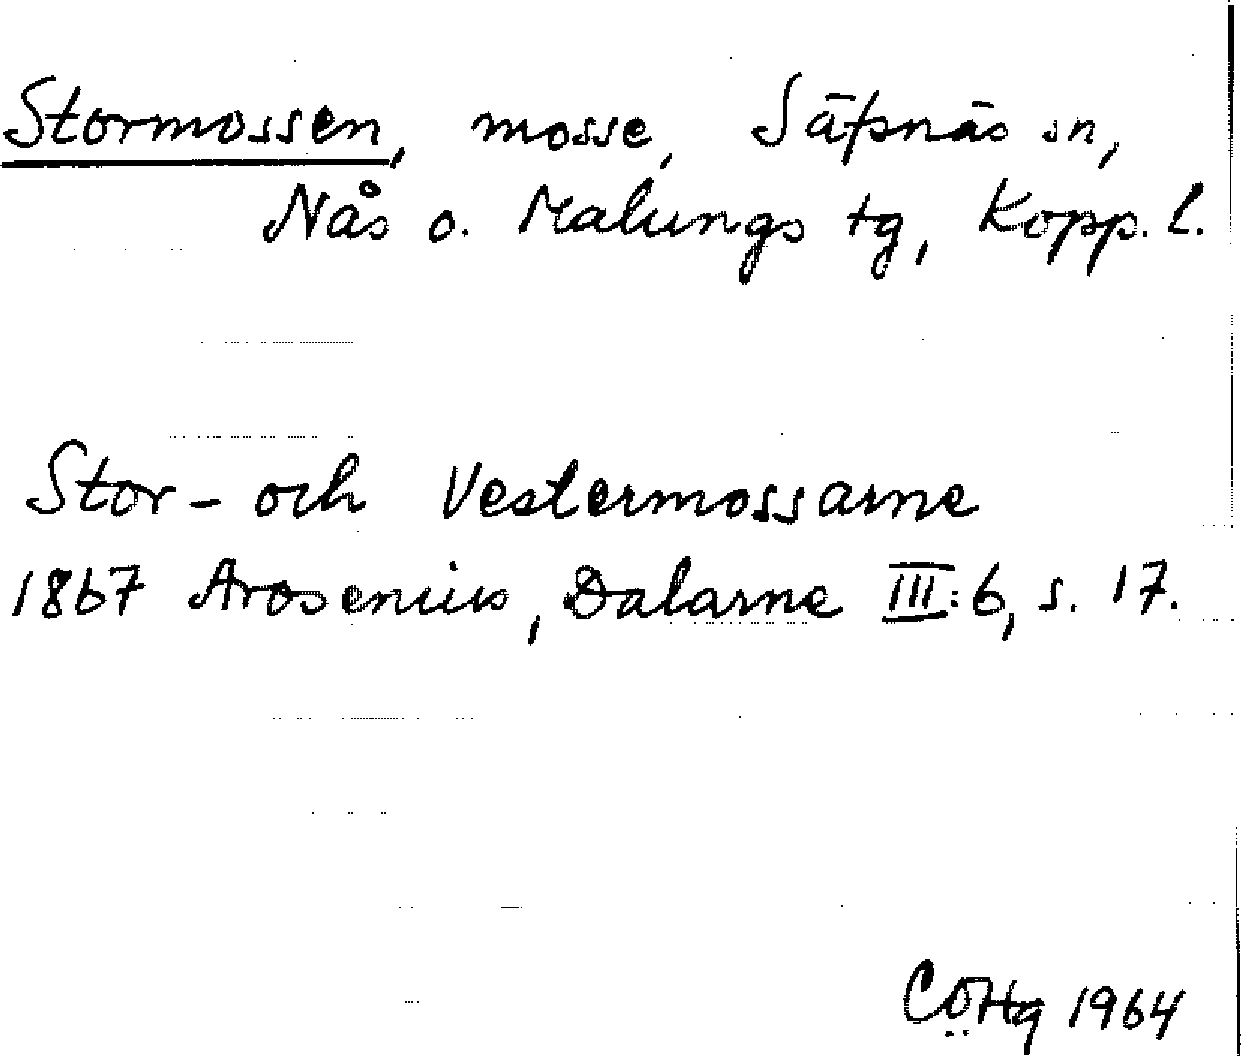 Stormossen, mosse, Säfsnäs sn,
Nås o. Malungs tg, Kopp. l.
Stor- och Vestermossarne
1867 Arosenius, Dalarne III:6, s. 17.
CÖHg 1964